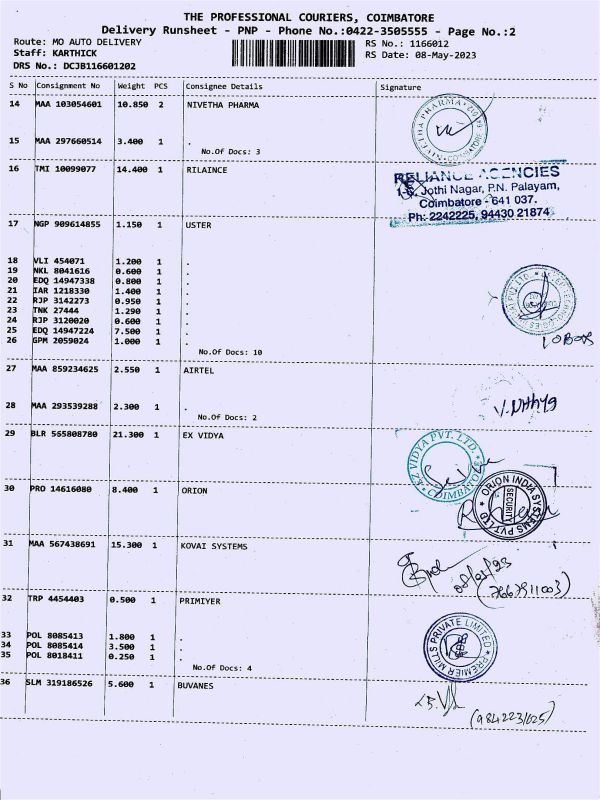 THE PROFESSIONAL COURIERS, COIMBATORE
Delivery Runsheet - PNP - Phone No.:0422-3505555 - Page No.:2
Route: MO AUTO DELIVERY RS No.: 1166012
Staff: KARTHICK RS Date: 08-May-2023
DRS No.: DCJB116601202
S No Consignment No Weight PCS Consignee Details Signature
14 MAA 103054601 10.850 2 NIVETHA PHARMA
NIVETHA PHARMA COIMBATORE
15 MAA 297660514 3.400 1 .
No.Of Docs: 3
16 TMI 10099077 14.400 1 RILAINCE
RELIANCE AGENCIES
Jothi Nagar, P.N. Palayam,
Coimbatore - 641 037.
Ph: 2242225, 94430 21874
17 NGP 909614855 1.150 1 USTER
18 VLI 454071 1.200 1 .
19 NKL 8041616 0.600 1 .
20 EDQ 14947338 0.800 1 .
21 IAR 1218330 1.400 1 .
22 RJP 3142273 0.950 1 .
23 TNK 27444 1.290 1 .
24 RJP 3120020 0.600 1 .
25 EDQ 14947224 7.500 1 .
26 GPM 2059024 1.000 1 .
No.Of Docs: 10
10 BOXS
27 MAA 859234625 2.550 1 AIRTEL
28 MAA 293539288 2.300 1 .
No.Of Docs: 2
29 BLR 565808780 21.300 1 EX VIDYA
VIDYA PVT. LTD. COIMBATORE
30 PRO 14616080 8.400 1 ORION
ORION INDIA SYSTEMS PVT LTD
SECURITY
31 MAA 567438691 15.300 1 KOVAI SYSTEMS
32 TRP 4454403 0.500 1 PRIMIYER
PREMIER MILLS PRIVATE LIMITED
33 POL 8085413 1.800 1 .
34 POL 8085414 3.500 1 .
35 POL 8018411 0.250 1 .
No.Of Docs: 4
36 SLM 319186526 5.600 1 BUVANES